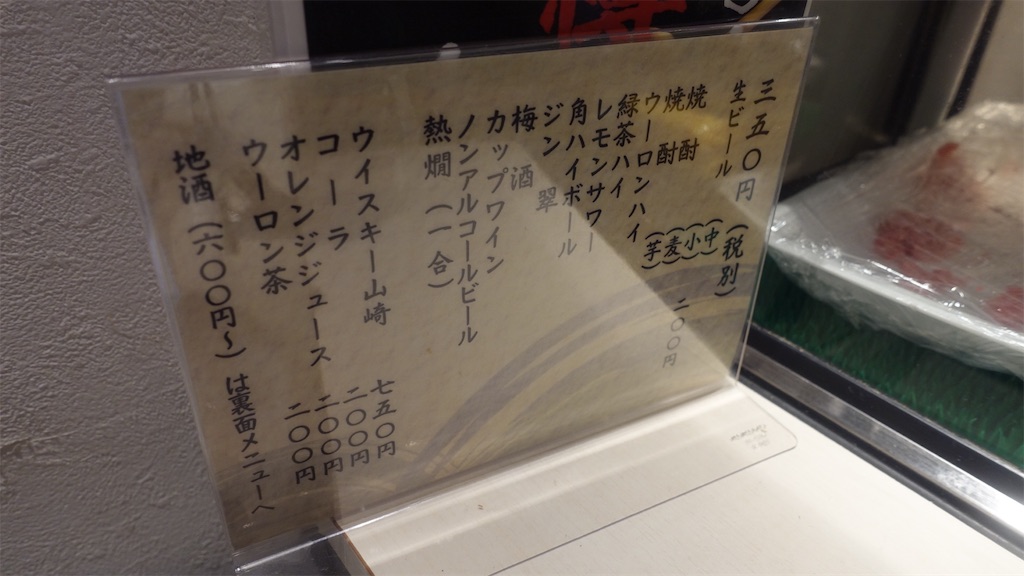 三五〇円(税別)
生ビール(中)
(小)二〇〇円
焼酎(麦)
焼酎(芋)
ウーロンハイ
緑茶ハイ
レモンサワー
角ハイボール
ジン 翠
梅酒
カップワイン
ノンアルコールビール
熱燗(一合)
ウイスキー山崎 七五〇円
コーラ 二〇〇円
オレンジジュース 二〇〇円
ウーロン茶 二〇〇円
地酒(六〇〇円〜)は裏面メニューへ